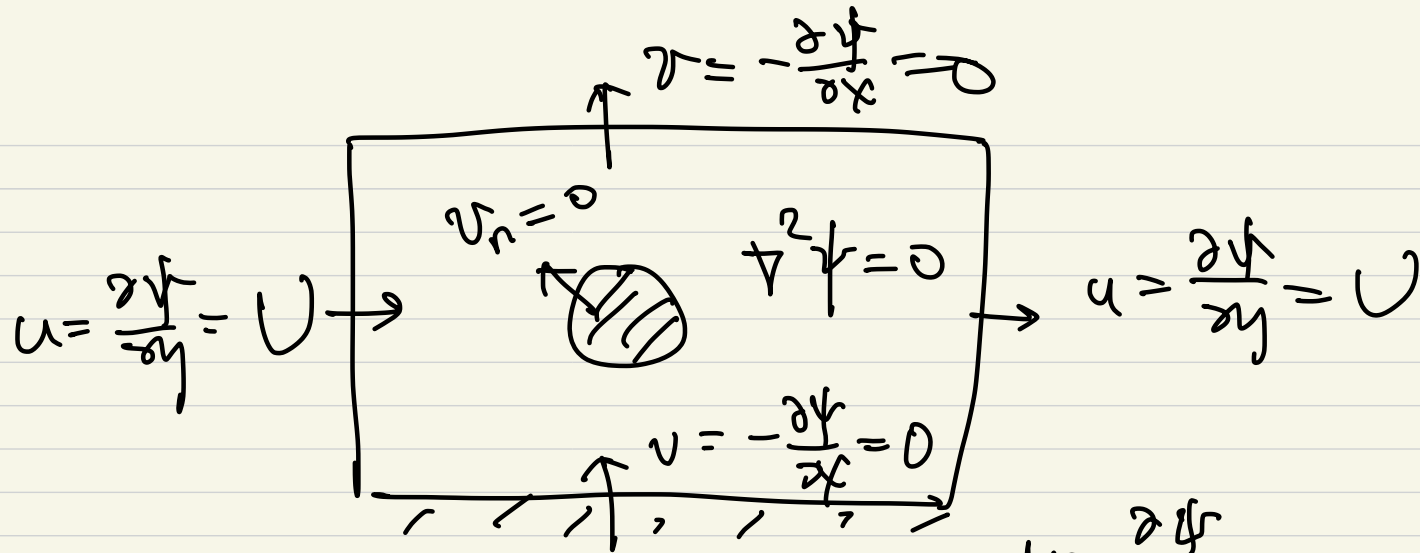 v = -∂ψ/∂x = 0
vₙ = 0
∇²ψ = 0
u = ∂ψ/∂y = U
u = ∂ψ/∂y = U
v = -∂ψ/∂x = 0
∂ψ